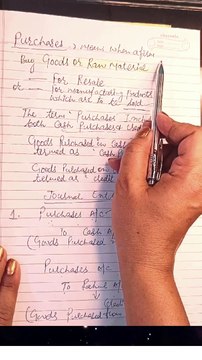 Purchases → means when a firm
Buy Goods or Raw Material
For Resale
or for manufacturing Products
which are to be sold
The term Purchases
both Cash Purchases &
Goods Purchased in Cash
termed as "Cash
Goods Purchased on
termed as "
Journal
1. Purchases A/c
To Cash A
(Goods Purchased
Purchases A/c
To Rahul A/
(Goods Purchased from